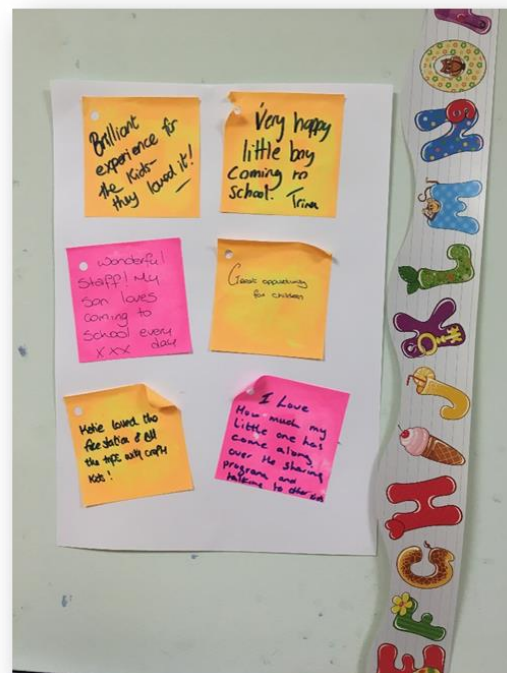 Brilliant
experience for
the kids-
they loved it!
Very happy
little boy
coming to
school. Trina
wonderful
Staff! My
son loves
coming to
school every
xxx day
Great opportunity
for children
loved the
fire station & all
the
kids!
I Love
How much my
little one has
come along
over the sharing
program and
talking to other
N
M
L
K
J
H
G
F
E